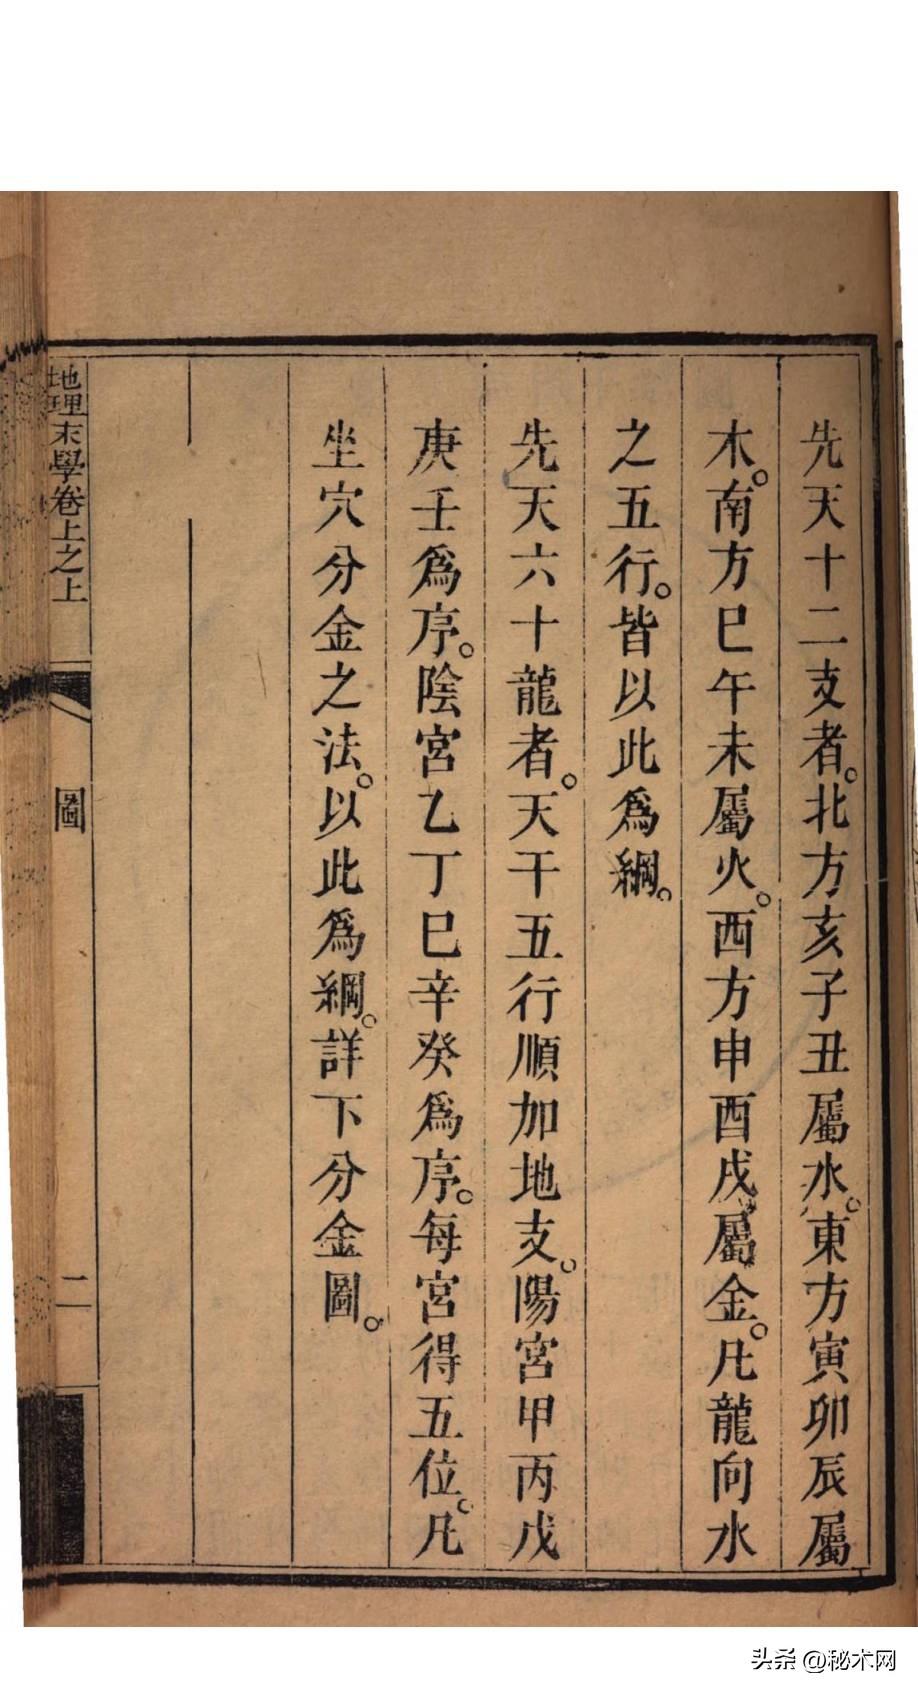 先天十二支者。北方亥子丑屬水。東方寅卯辰屬
木。南方巳午未屬火。西方申酉戌屬金。凡龍向水
之五行。皆以此爲綱。
先天六十龍者。天干五行順加地支。陽宮甲丙戊
庚壬爲序。陰宮乙丁巳辛癸爲序。每宮得五位。凡
坐穴分金之法。以此爲綱。詳下分金圖。
地理末學卷上之上
圖
二
头条 @秘术网